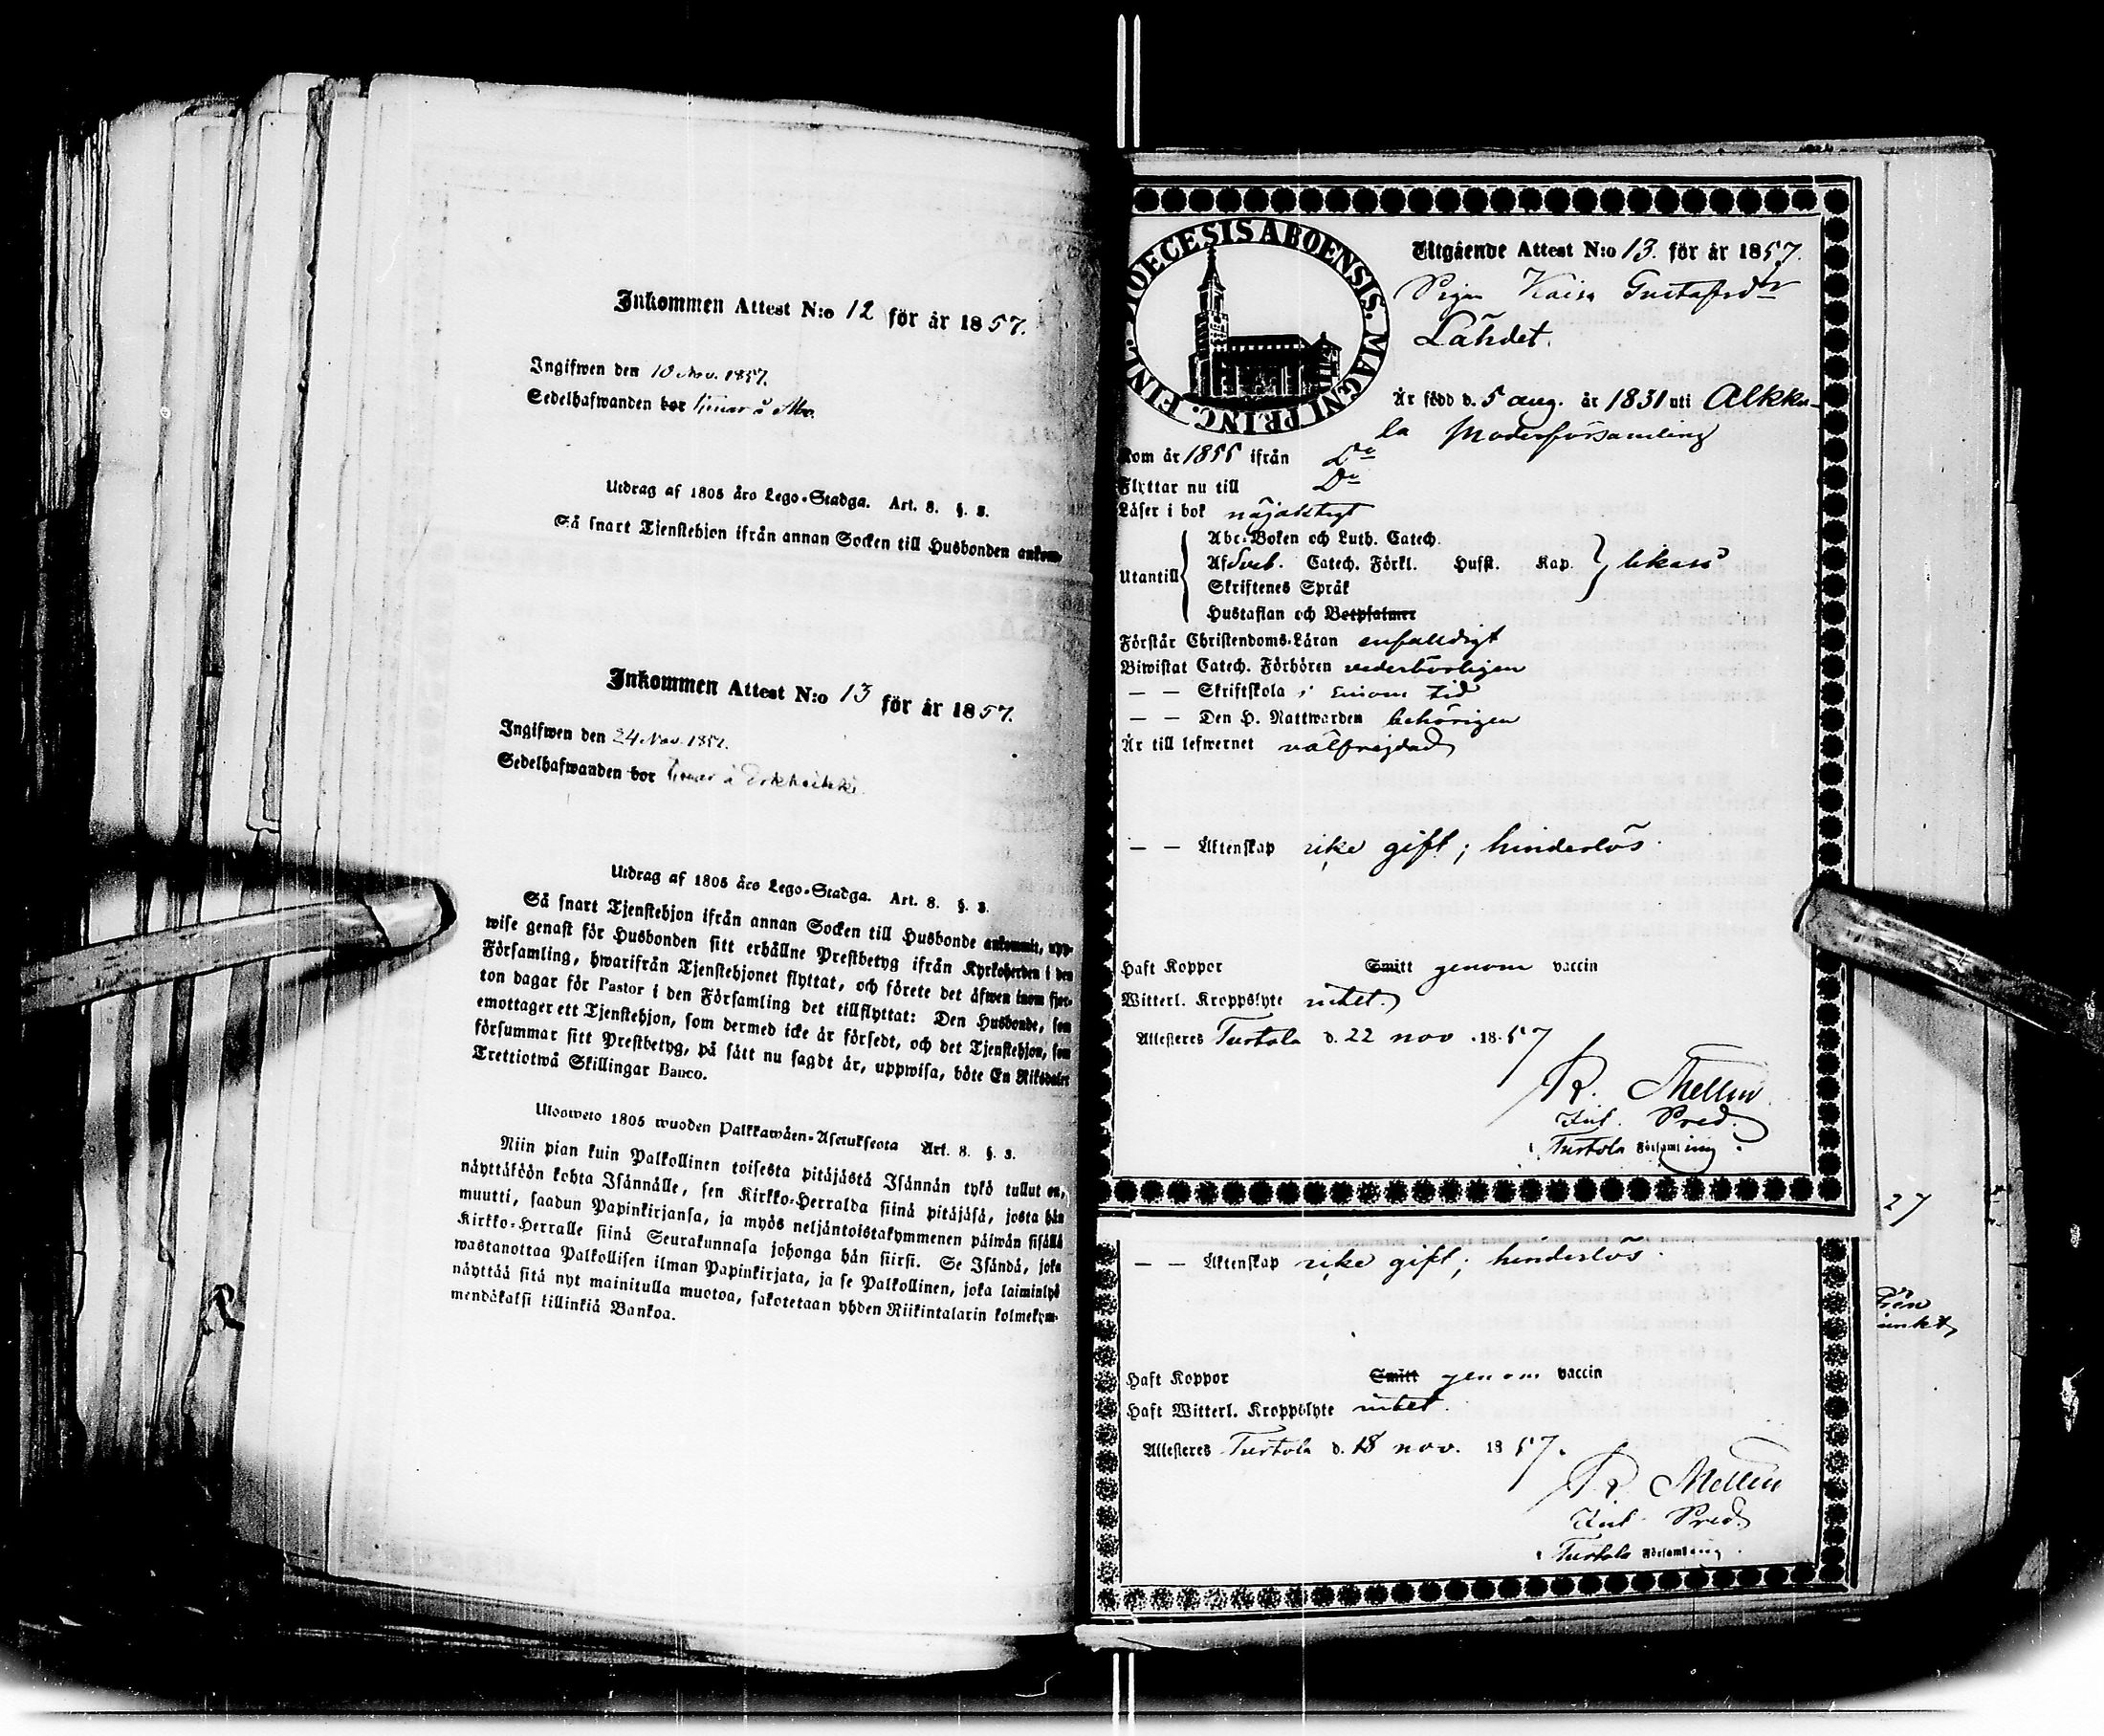 Inkommen Attest N:o 12 för år 1857.
Ingifwen den 10 Nov. 1857.
Sedelhafwanden bor tjenar å Abo.
Utdrag af 1805 års Lego-Stadga. Art. 8. §. 3.
Så snart Tjenstehjon ifrån annan Socken till Husbonden ankom-
Inkommen Attest N:o 13 för år 1857.
Ingifwen den 24 Nov. 1857.
Sedelhafwanden bor tjenar å
Utdrag af 1805 års Lego-Stadga. Art. 8. §. 3.
Så snart Tjenstehjon ifrån annan Socken till Husbonde ankommit, upp-
wise genast för Husbonden sitt erhållne Prestbetyg ifrån Kyrkoherden i den
Församling, hwarifrån Tjenstehjonet flyttat, och förete det äfwen inom fjor-
ton dagar för Pastor i den Församling det tillflyttat: Den Husbonde, som
emottager ett Tjenstehjon, som dermed icke är försedt, och det Tjenstehjon, som
försummar sitt Prestbetyg, på sätt nu sagdt är, uppwisa, böte En Riksdaler
Trettiotwå Skillingar Banco.
Ulosweto 1805 wuoden Palkkawäen-Asetuksesta Art. 8. §. 3.
Niin pian kuin Palkollinen toisesta pitäjästä Isännän tykö tullut on,
näyttäköön kohta Isännälle, sen Kirkko-Herralda siinä pitäjäsä, josta hän
muutti, saadun Papinkirjansa, ja myös neljäntoistakymmenen päiwän sisällä
Kirkko-Herralle siinä Seurakunnasa johonga hän siirsi. Se Isändä, joka
wastanottaa Palkollisen ilman Papinkirjata, ja se Palkollinen, joka laiminlyö
näyttää sitä nyt mainitulla muotoa, sakotetaan yhden Riikintalarin kolmekym-
mendäkaksi killinkiä Bankoa.
DIOECESIS ABOENSIS. MAGNI PRINC. FINL.
Utgående Attest N:o 13. för år 1857.
Pigan Kaisa Gustafsdr
Lähdet.
Är född d. 5 aug. år 1831 uti Alkku-
la Moderförsamling
Kom år 1856 ifrån Do
Flyttar nu till Do
Läser i bok nöjaktigt
Abc-Boken och Luth. Catech.
Utantill Af Sveb. Catech. Förkl. Husst. Kap. likaså
Skriftenes Språk
Hustaflan och Botpsalmer
Förstår Christendoms-Läran enfaldigt
Biwistat Catech. Förhören vederbörligen
— — Skriftskola i sinom tid
— — Den H. Nattwarden behörigen
Är till lefwernet välfrejdad
— — Äktenskap icke gift; hinderlös.
Haft Koppor Smitt genom vaccin
Witterl. Kroppslyte intet.
Attesteres Turtola d. 22 nov. 1857
R. Mellin
Kul. Pred.
i Turtola Församling.
27
— — Äktenskap icke gift; hinderlös.
Haft Koppor Smitt genom vaccin
Haft Witterl. Kroppslyte intet.
Attesteres Turtola d. 18 nov. 1857.
R. Mellin
Kul. Pred.
i Turtola Församling.